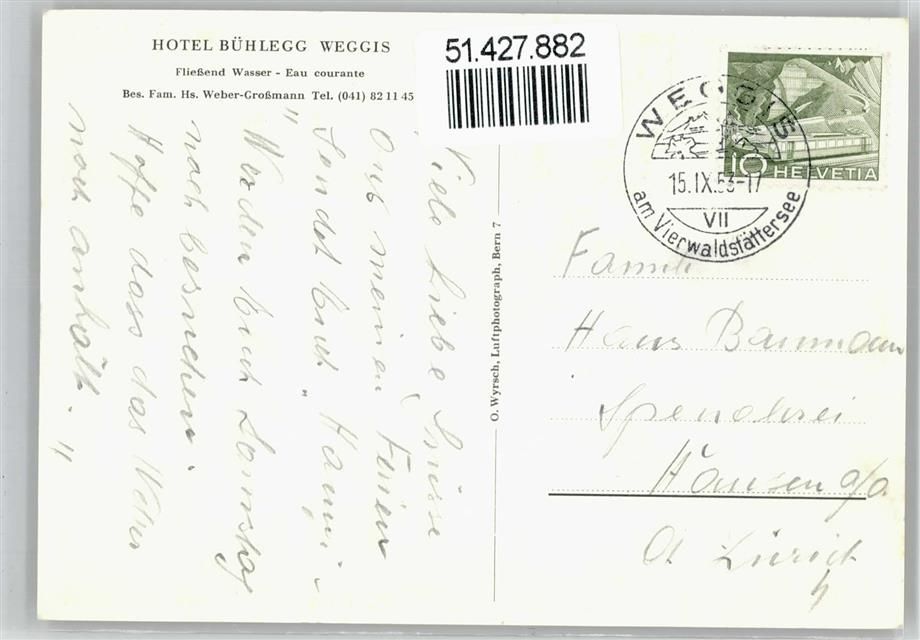 HOTEL BÜHLEGG WEGGIS
Fließend Wasser - Eau courante
Bes. Fam. Hs. Weber-Großmann Tel. (041) 82 11 45
51.427.882
WEGGIS
15.IX.53-17
VII
am Vierwaldstättersee
10 HELVETIA
Viele liebe Grüsse
aus meinen Ferien
sendet Euch "Hanny"
Werden Euch Samstag
noch besuchen.
Hoffe dass das Wetter
noch anhält.
O. Wyrsch, Luftphotograph, Bern 7
Famili
Hans Baumann
Hausen a/a.
Zürich